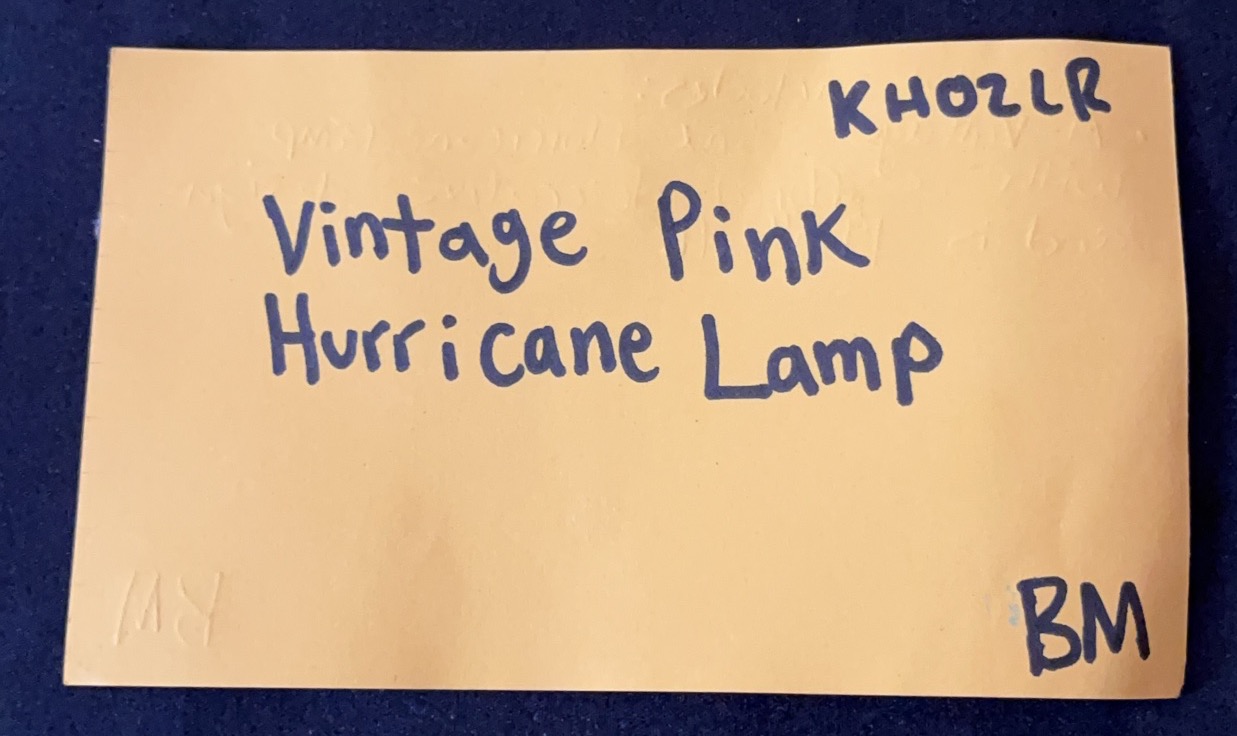 KH02LR
Vintage Pink
Hurricane Lamp
BM